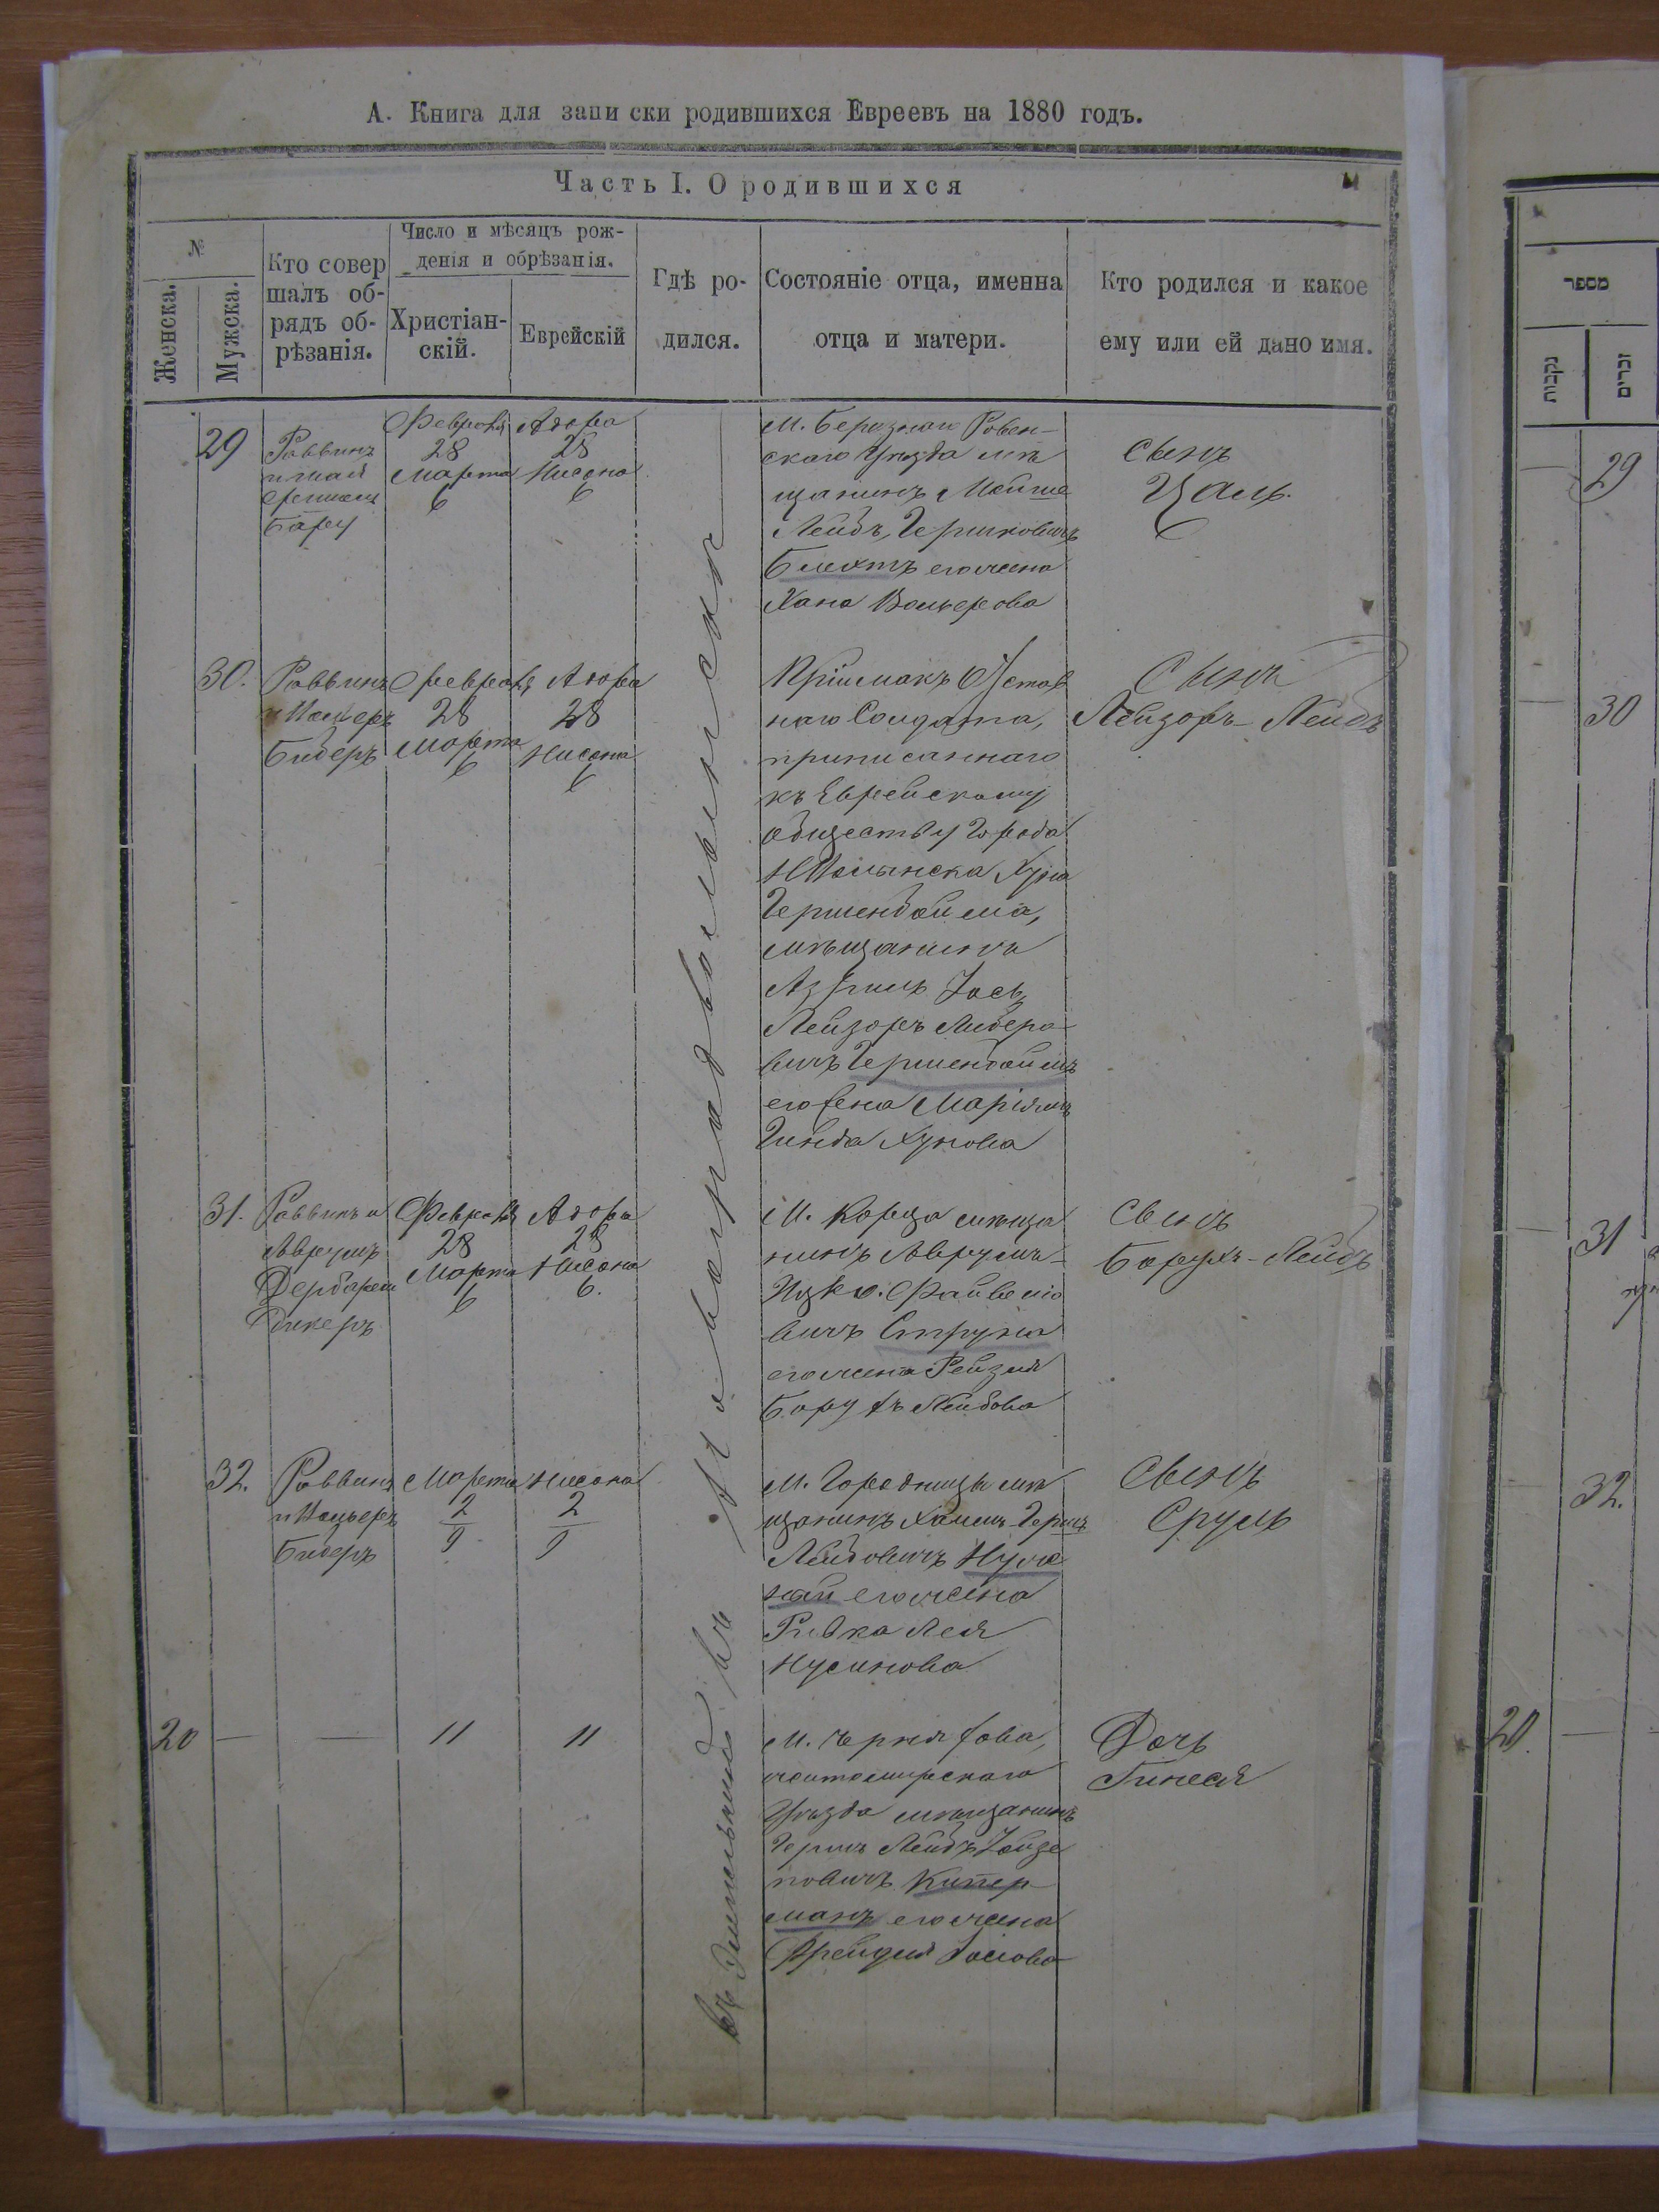 А. Книга для запи ски родившихся Евреевъ на 1880 годъ.
Часть I. О родившихся
№
Женска.
Мужска.
Кто совер
шалъ об-
рядъ об-
рѣзанія.
Число и мѣсяцъ рож-
денія и обрѣзанія.
Христіан-
скій.
Еврейскій
Гдѣ ро-
дился.
Состояніе отца, именна
отца и матери.
Кто родился и какое
ему или ей дано имя.
29
Раввинъ
Февраля
28
Марта
6
Адора
28
Нисона
6
М. Березнаго Ровен-
скаго Уѣзда мѣ
щанинъ Мойше
Лейбъ Гершковичъ
его жена
Хана
Сынъ
Цаль
30.
Раввинъ
и Мошеръ
Бидеръ
Февраля
28
Марта
6
Адора
28
Нисона
6
Пріймакъ Отстав
наго Солдата,
приписаннаго
къ Еврейскому
обществу Города
Хуна
Гершенбойма,
мѣщанинъ
Азриль Іось
Лейзоръ
вичъ Гершенбоймъ
его жена Маріямъ
Гинда Хунова
Сынъ
Лейзоръ-Лейбъ
31.
Раввинъ и
Аврумъ
Февраля
28
Марта
6
Адора
28
Нисона
6.
М. Корца мѣща
нинъ Аврумъ-
Ицко Файвело
вичъ Струна
его жена Рейзя
Борухъ Лейбова
Сынъ
Борухъ-Лейбъ
32.
Раввинъ
и Мошеръ
Бидеръ
Марта
2
9
Нисона
2
9
М. Городницы мѣ
щанинъ Хаимъ Гершъ
Лейбовичъ
его жена
Ривка Лея
Нусинова
Сынъ
Сруль
20
—
—
11
11
М. Черняхова,
житомирскаго
Уѣзда мѣщанинъ
Гершъ Лейбъ
повичъ Кипер
манъ его жена
Сынъ
Дочь
Гинеся
въ
Новоградволынскъ
מספר
נקבות
זכרים
29
30
31
32.
20.